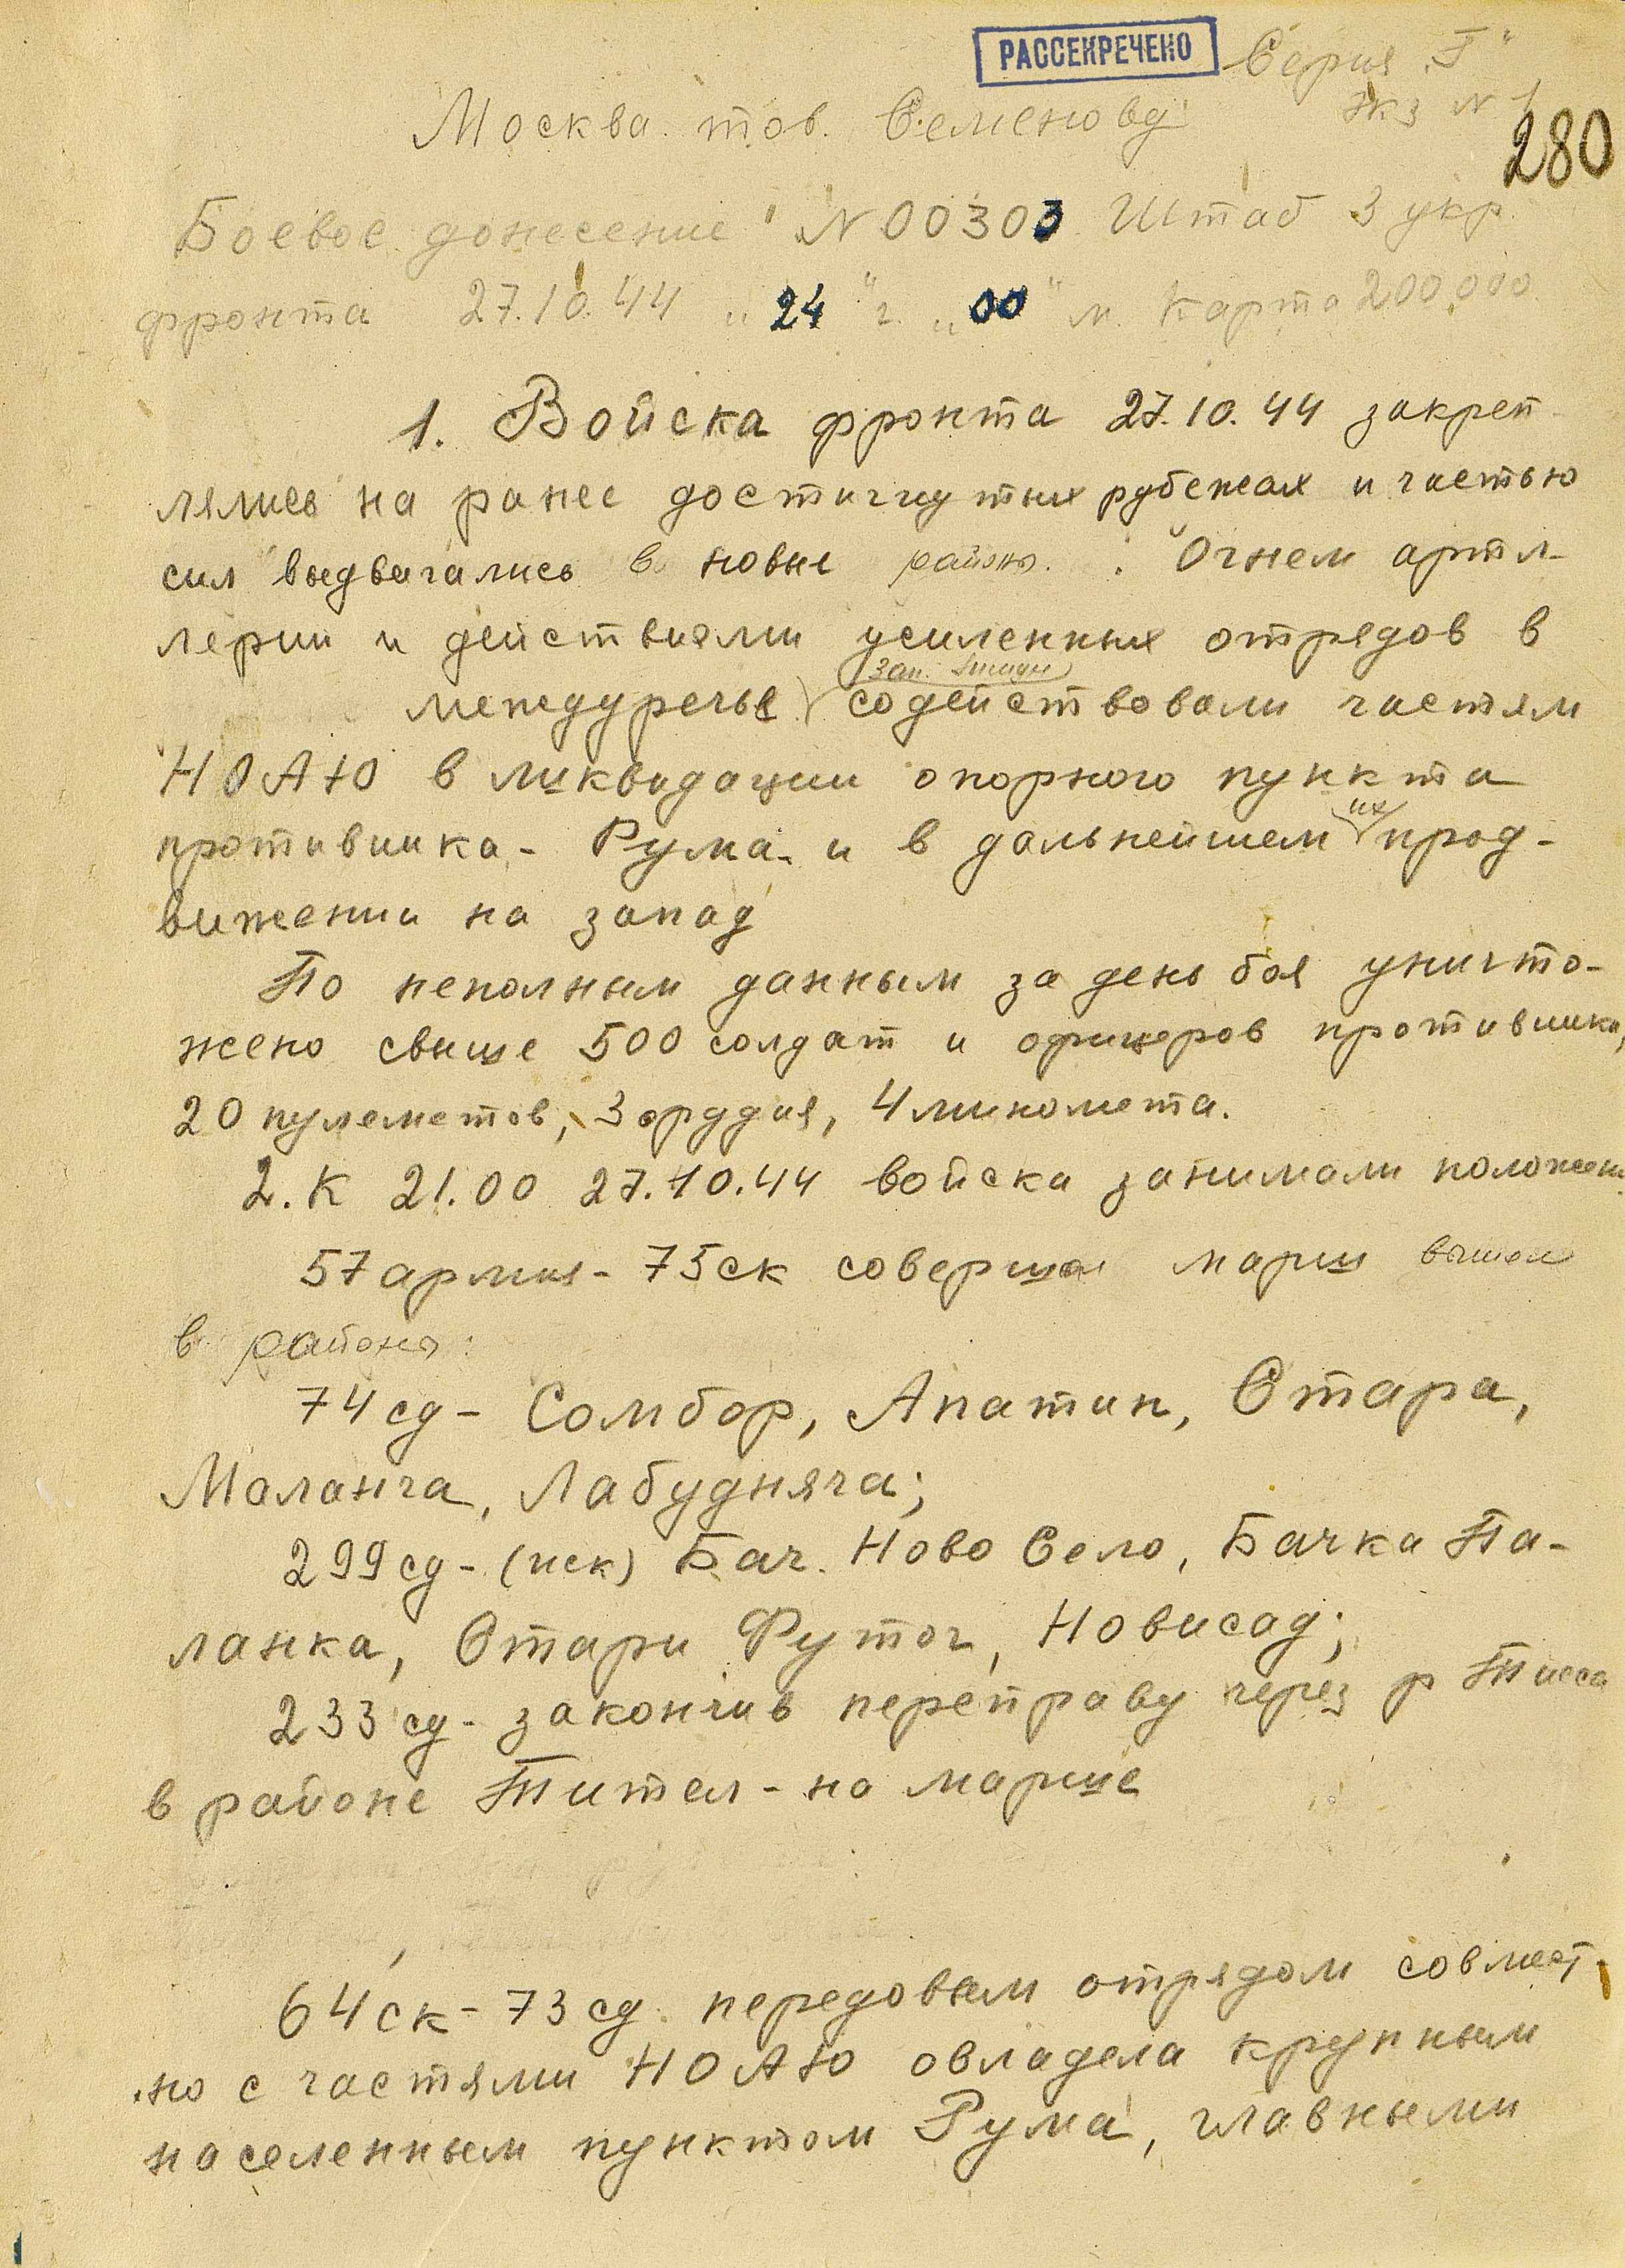 РАССЕКРЕЧЕНО Серия „Г"
Москва тов. Семенову экз N 1
280
Боевое донесение N 00303 Штаб 3 укр.
фронта 27.10.44 „24" ч. „00" м. Карта 200.000
1. Войска фронта 27.10.44 закреп
лялись на ранее достигнутых рубежах и частью
сил выдвигались в новые районы. Огнем артил-
лерии и действиями усиленных отрядов в
зап.
междуречье содействовали частям
НОАЮ в ликвидации опорного пункта
противника - Рума и в дальнейшем их прод-
вижении на запад
По неполным данным за день боя уничто-
жено свыше 500 солдат и офицеров противника,
20 пулеметов, 3 орудия, 4 миномета.
2. К 21.00 27.10.44 войска занимали положен.
57 армия - 75ск совершая марш вышел
в районы:
74 сд - Сомбор, Апатин, Стара,
Моланча, Лабудняча;
299 сд - (иск) Бач. Ново Село, Бачка Па-
ланка, Стари Футог, Новисад;
233 сд - закончив переправу через р Тисса
в районе Тител - на марше
64 ск - 73 сд передовым отрядом совмест
но с частями НОАЮ овладела крупным
населенным пунктом Рума, главными